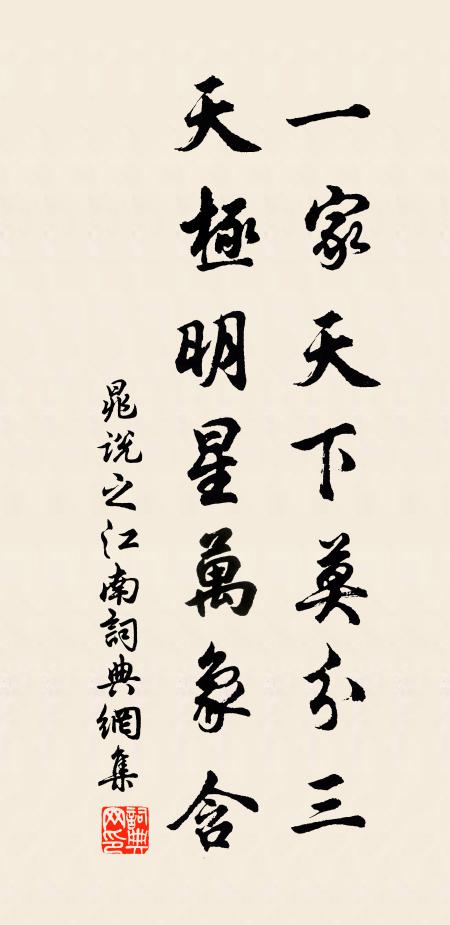 一家天下莫分三
天極明星萬象含
晁說之江南詞典網集
詞典網印